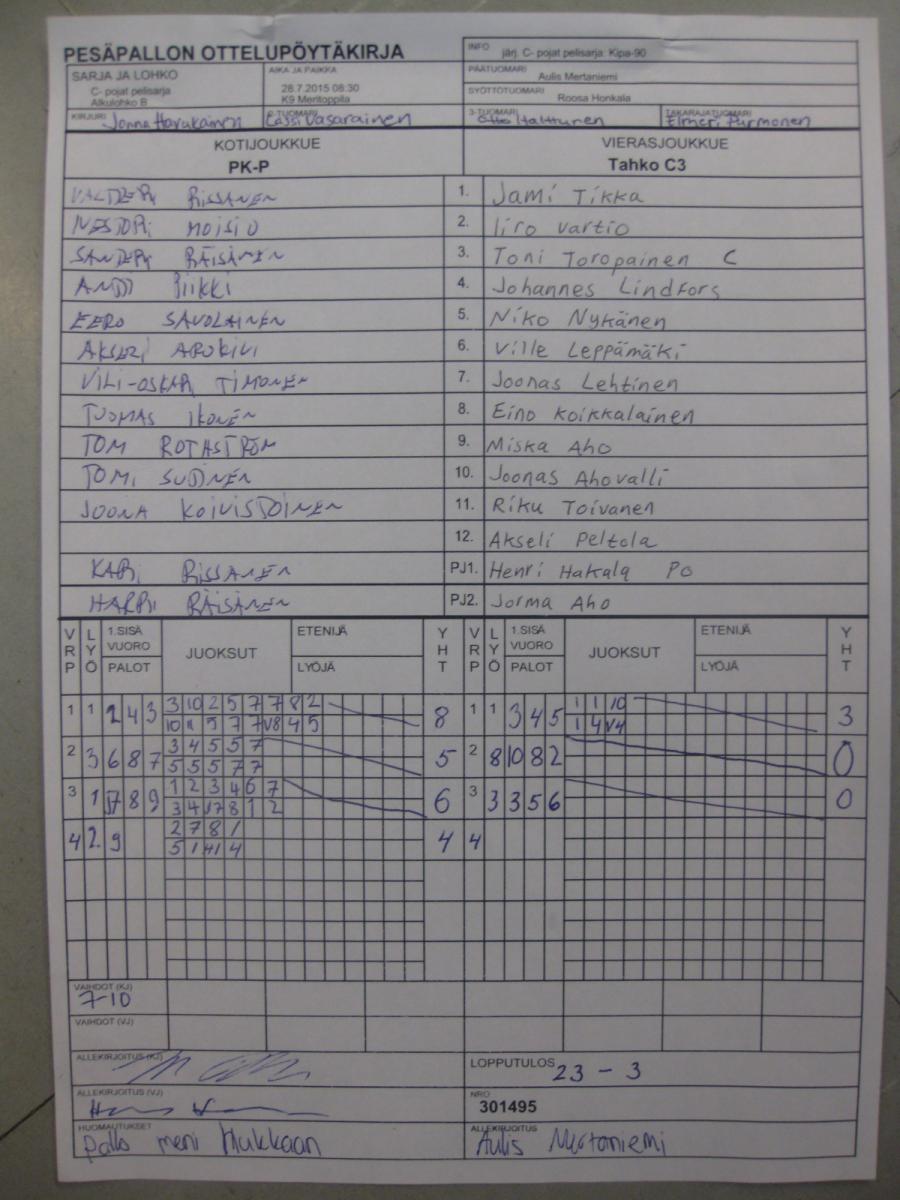 PESÄPALLON OTTELUPÖYTÄKIRJA
INFO järj. C- pojat pelisarja: Kipa-90
SARJA JA LOHKO
C- pojat pelisarja
Alkulohko B
AIKA JA PAIKKA
28.7.2015 08:30
K9 Meritoppila
PÄÄTUOMARI
Aulis Mertaniemi
SYÖTTÖTUOMARI
Roosa Honkala
KIRJURI Jonna Havukainen
2-TUOMARI Lassi Vasarainen
3-TUOMARI Otto Halttunen
TAKARAJATUOMARI Elmeri Turmonen
KOTIJOUKKUE
PK-P
VIERASJOUKKUE
Tahko C3
VALTTERI RISSANEN 1. Jami Tikka
NESTORI MOISIO 2. Iiro Vartio
SANTERI RÄISÄNEN 3. Toni Toropainen C
ANTTI PIIKKI 4. Johannes Lindfors
EERO SAVOLAINEN 5. Niko Nykänen
AKSELI AROKIVI 6. Ville Leppämäki
VILI-OSKARI TIMONEN 7. Joonas Lehtinen
TUOMAS IKONEN 8. Eino Koikkalainen
TOM ROTHSTRÖM 9. Miska Aho
TOMI SUTINEN 10. Joonas Ahovalli
JOONA KOIVISTOINEN 11. Riku Toivanen
12. Akseli Peltola
KARI RISSANEN PJ1. Henri Hakala PO
HARRI RÄISÄNEN PJ2. Jorma Aho
VRP LYÖ 1.SISÄ VUORO PALOT JUOKSUT ETENIJÄ LYÖJÄ YHT VRP LYÖ 1.SISÄ VUORO PALOT JUOKSUT ETENIJÄ LYÖJÄ YHT
1 1 2 4 3 3 10 2 5 7 7 8 2 8 1 1 3 4 5 1 1 10 3
10 11 5 7 7 V8 4 5 1 4 V4
2 3 6 8 7 3 4 5 5 7 5 2 8 10 8 2 0
5 5 5 7 7
3 1 7 8 9 1 2 3 4 6 7 6 3 3 3 5 6 0
3 4 17 8 1 2
4 2 9 2 7 8 1 4 4
5 1 4
VAIHDOT (KJ)
7-10
VAIHDOT (VJ)
ALLEKIRJOITUS (KJ)
LOPPUTULOS 23 - 3
ALLEKIRJOITUS (VJ)
NRO
301495
HUOMAUTUKSET
pallo meni Hukkaan
ALLEKIRJOITUS
Aulis Mertaniemi